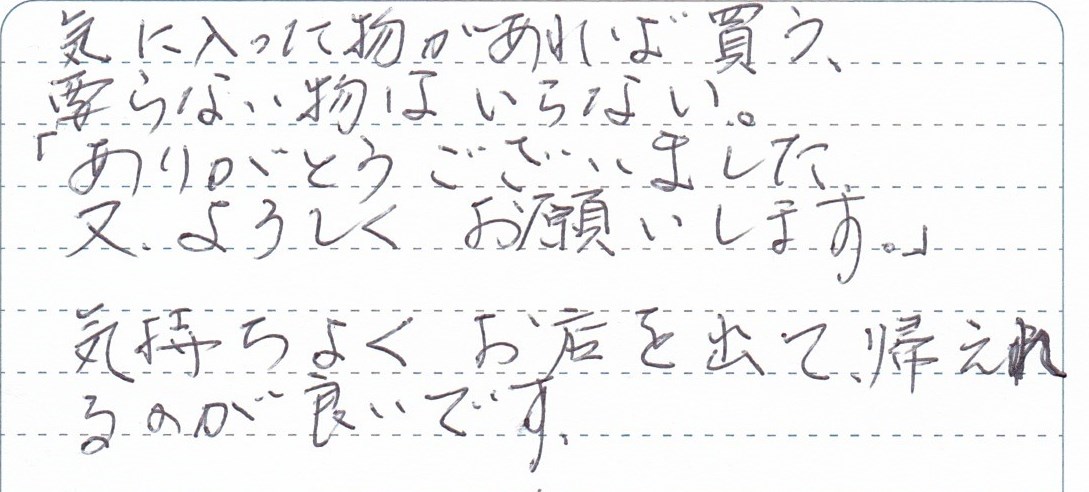 気に入った物があれば買う、
要らない物はいらない。
「ありがとうございました、
又、よろしくお願いします。」
気持ちよくお店を出て、帰えれ
るのが良いです、